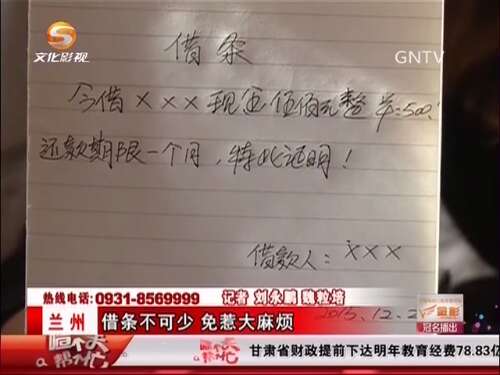 文化影视
GNTV
借条
今借×××现金伍佰元整 ¥:500.
还款期限一个月,特此证明!
借款人:×××
2015.12.2
热线电话:0931-8569999
记者 刘永鹏 魏粒培
兰州
借条不可少 免惹大麻烦
冠名播出
甘肃省财政提前下达明年教育经费78.83亿